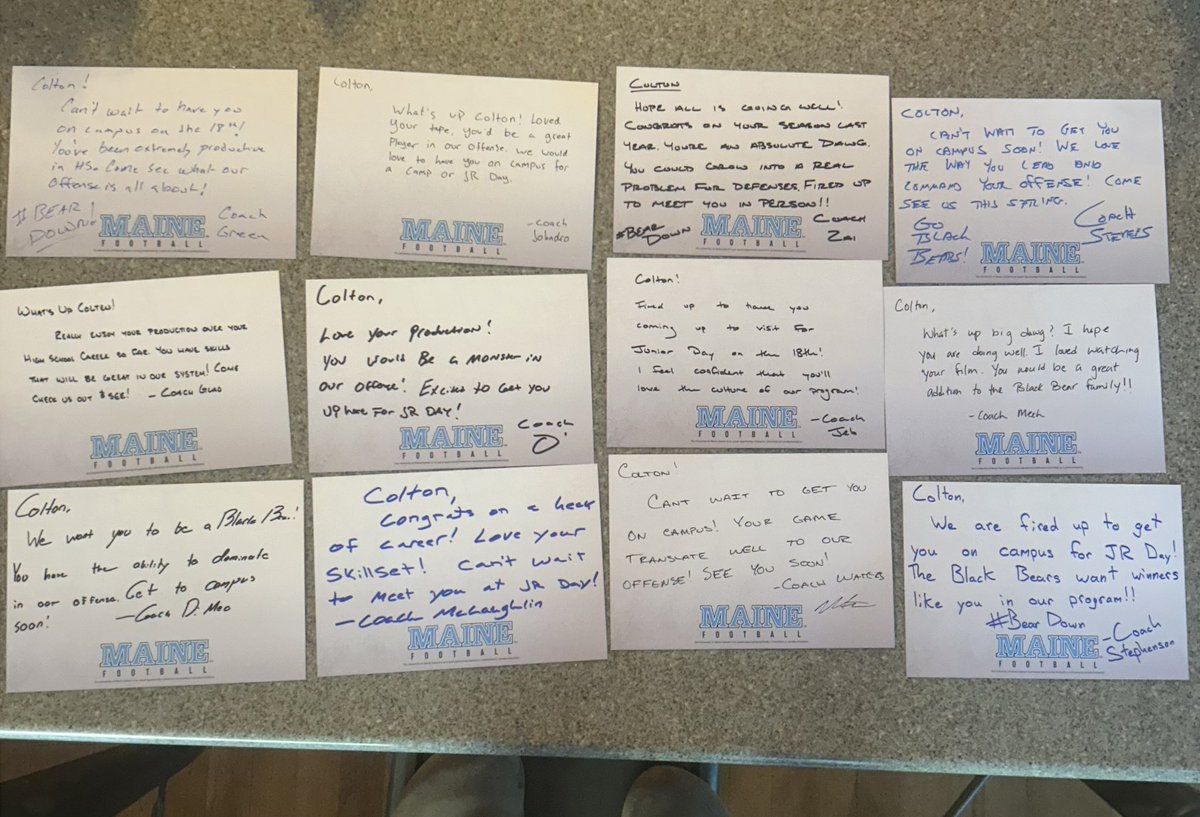 Colton!
Can't wait to have you
on campus on the 18th!
You've been extremely productive
in HS. Come see what our
Offense is all about!
#BEAR
DOWN!
Coach
Green
MAINE
FOOTBALL
Colton,
What's up Colton! Loved
your tape, you'd be a great
Player in our offense. We would
love to have you on campus for
a camp or JR Day.
-Coach
Johndro
MAINE
FOOTBALL
COLTON
HOPE ALL IS GOING WELL!
CONGRATS ON YOUR SEASON LAST
YEAR. YOU'RE AN ABSOLUTE DAWG.
YOU COULD GROW INTO A REAL
PROBLEM FOR DEFENSES. FIRED UP
TO MEET YOU IN PERSON!!
#BEAR
DOWN
COACH
ZAI
MAINE
FOOTBALL
COLTON,
CAN'T WAIT TO GET YOU
ON CAMPUS SOON! WE LOVE
THE WAY YOU LEAD AND
COMMAND YOUR OFFENSE! COME
SEE US THIS SPRING.
GO
BLACK
BEARS!
COACH
STEVENS
MAINE
FOOTBALL
WHAT'S UP COLTON!
REALLY ENJOY YOUR PRODUCTION OVER YOUR
HIGH SCHOOL CAREER SO FAR. YOU HAVE SKILLS
THAT WILL BE GREAT IN OUR SYSTEM! COME
CHECK US OUT & SEE! - COACH
MAINE
FOOTBALL
Colton,
Love your production!
You would Be a monster in
our offense! Excited to Get you
UP here For JR DAY!
Coach
O'
MAINE
FOOTBALL
Colton!
Fired up to have you
coming up to visit for
Junior Day on the 18th!
I feel confident that you'll
love the culture of our program!
-Coach
Jeb
MAINE
FOOTBALL
Colton,
What's up big dawg? I hope
you are doing well. I loved watching
your film. You would be a great
addition to the Black Bear family!!
-Coach Mech
MAINE
FOOTBALL
Colton,
We want you to be a Black Bear!
You have the ability to dominate
in our offense. Get to campus
soon!
-Coach D. Moo
MAINE
FOOTBALL
Colton,
Congrats on a heck
of career! Love your
Skillset! Can't wait
to meet you at JR Day!
-Coach McLaughlin
MAINE
FOOTBALL
COLTON!
CANT WAIT TO GET YOU
ON CAMPUS! YOUR GAME
TRANSLATE WELL TO OUR
OFFENSE! SEE YOU SOON!
-COACH WATERS
MAINE
FOOTBALL
Colton,
We are fired up to get
you on campus for JR Day!
The Black Bears want winners
like you in our program!!
#Bear Down
-Coach
Stephenson
MAINE
FOOTBALL